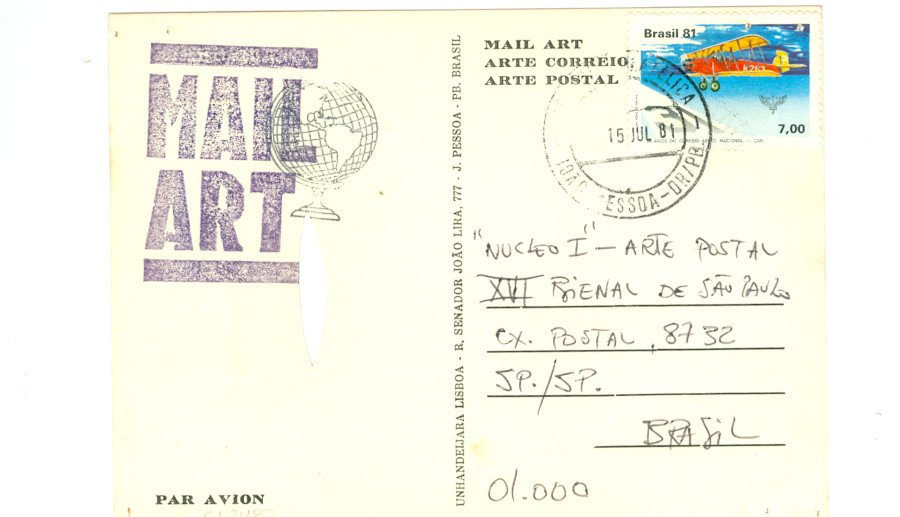 MAIL
ART
PAR AVION
UNHANDEIJARA LISBOA - R. SENADOR JOÃO LIRA, 777 - J. PESSOA - PB. BRASIL
MAIL ART
ARTE CORREIO
ARTE POSTAL
Brasil 81
A251
7,00
ANOS DO CORREIO AÉREO NACIONAL - CAN
15 JUL 81
JOÃO PESSOA-DR/PB
"NUCLEO I" — ARTE POSTAL
XVI BIENAL DE SÃO PAULO
CX. POSTAL, 8732
SP./SP.
BRASIL
01.000